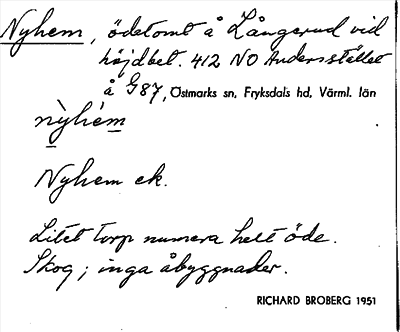 Nyhem, ödetomt å Långerud vid
höjdbet. 412 NO Andersstället
å G87, Östmarks sn, Fryksdals hd, Värml. län
nỳhém
Nyhem ek.
Litet torp numera helt öde.
Skog; inga åbyggnader.
RICHARD BROBERG 1951